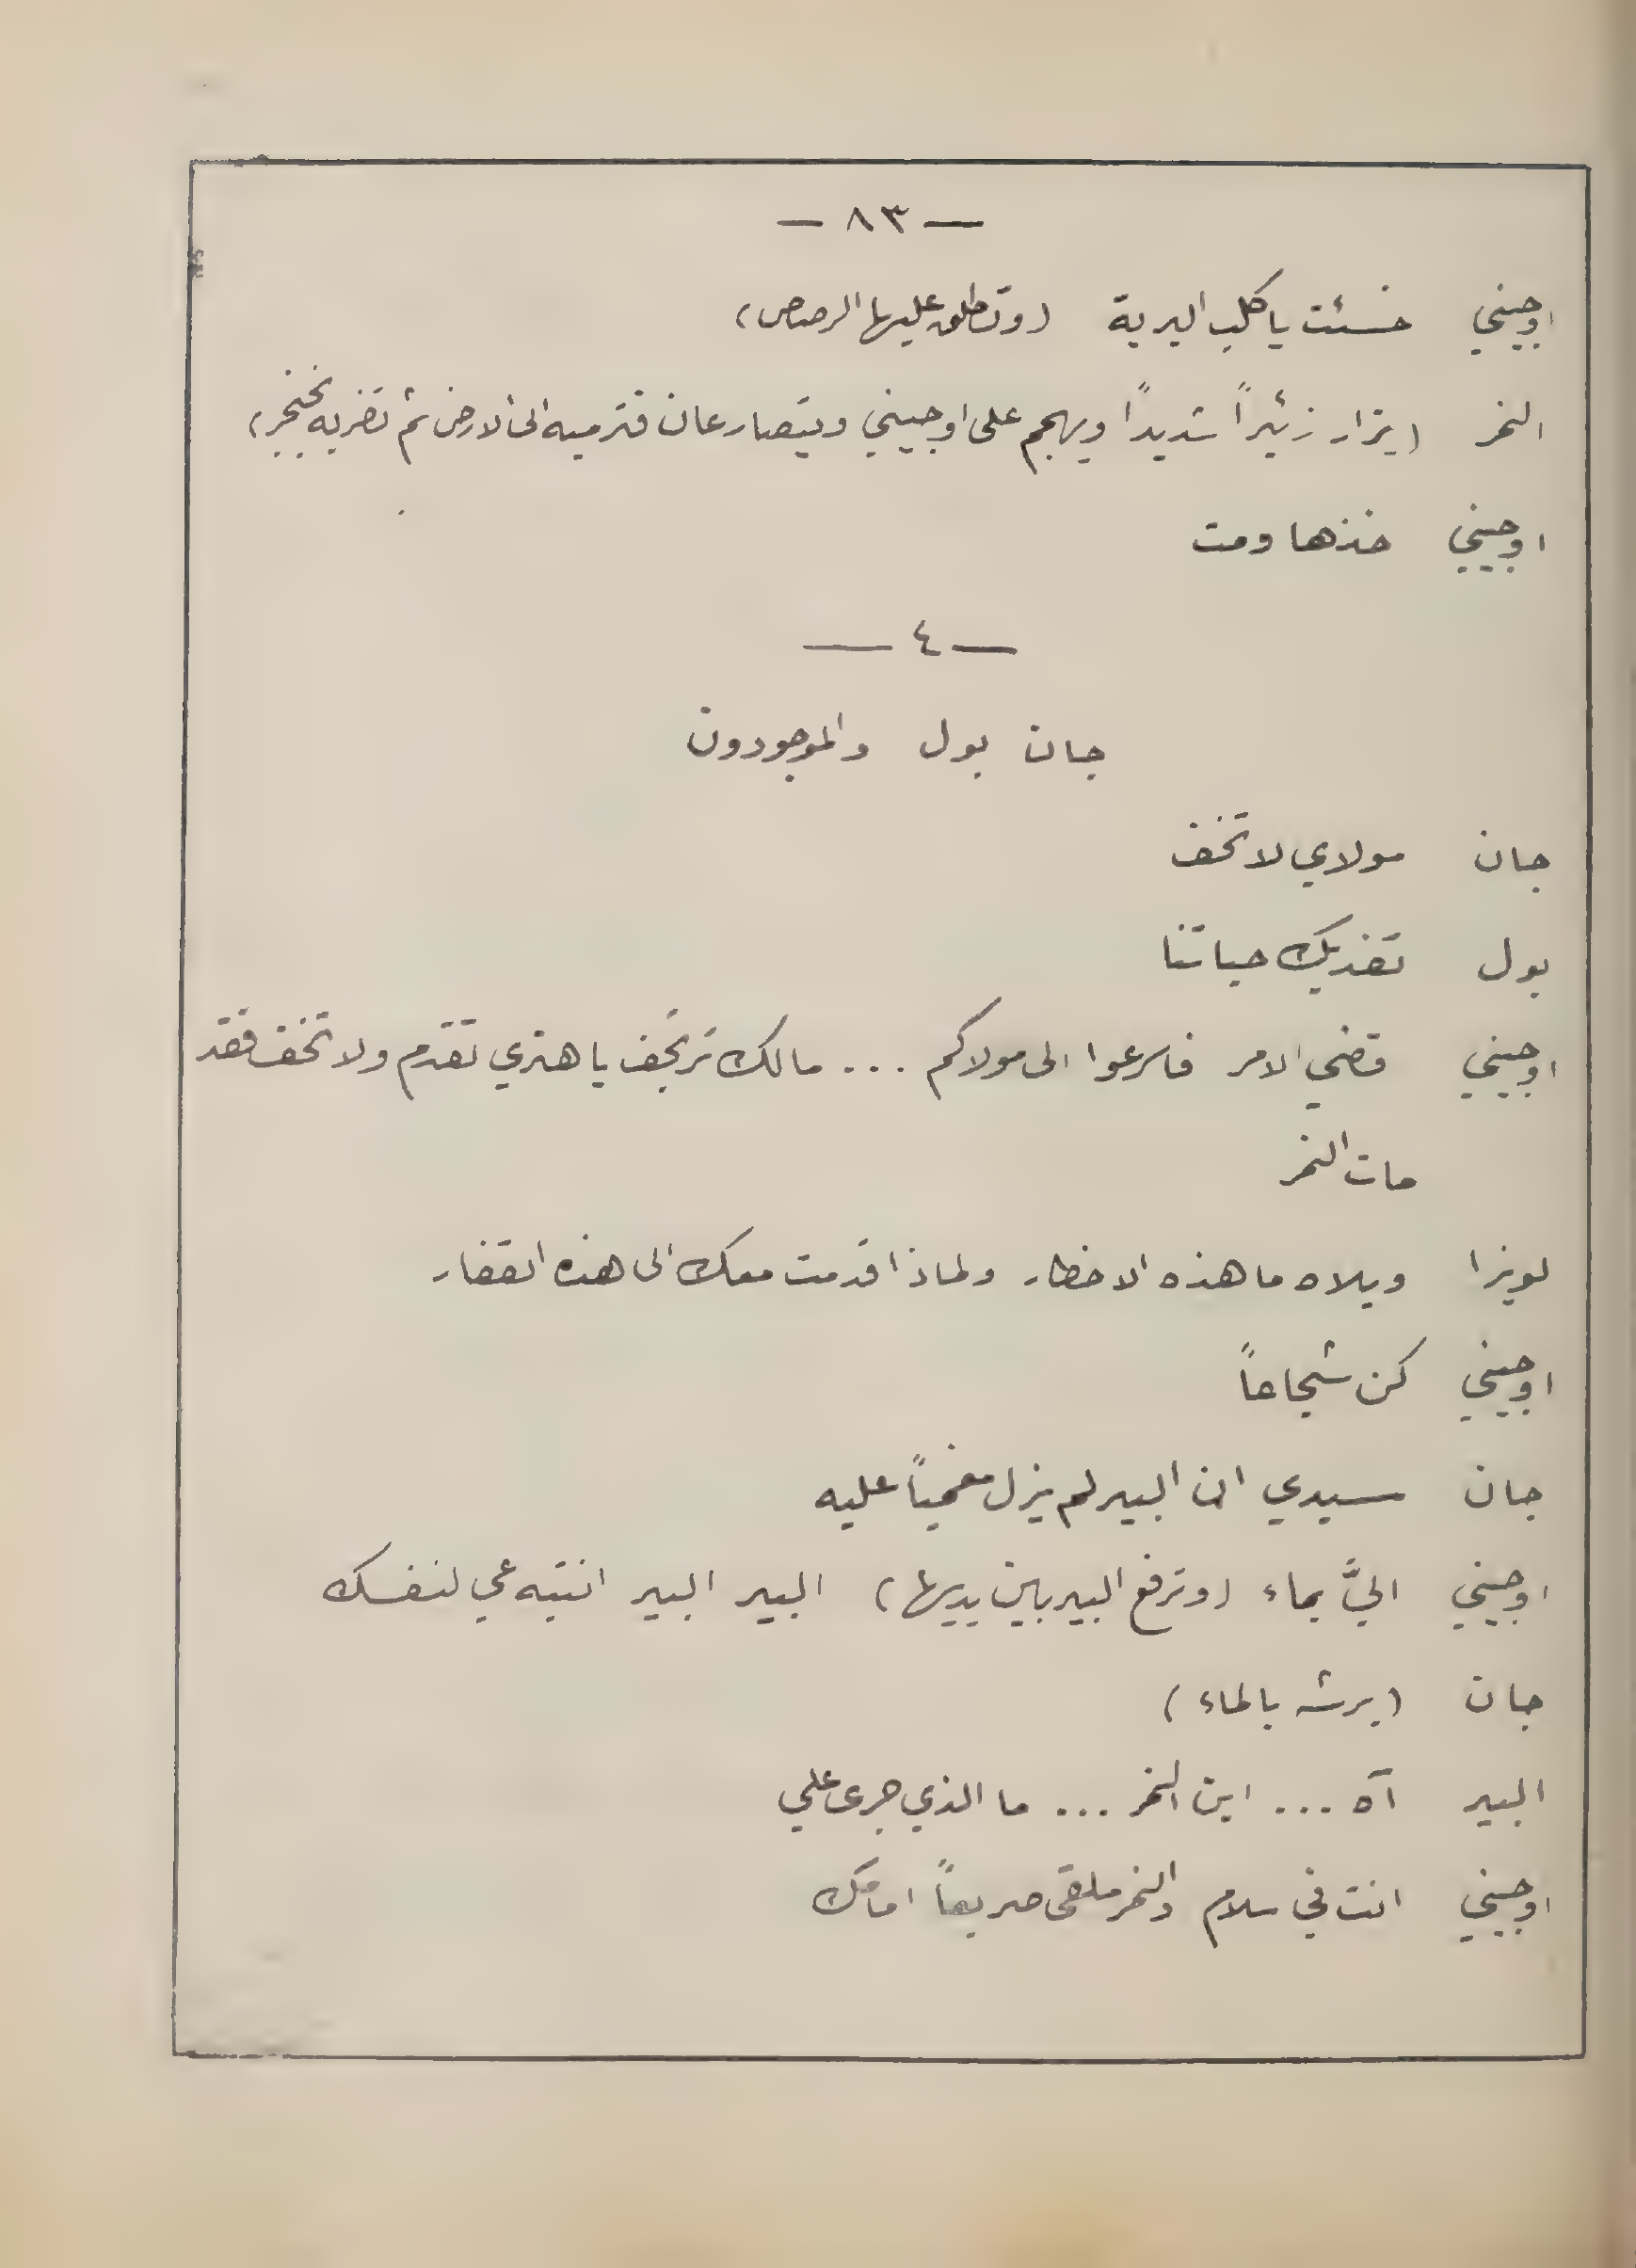 — ٨٣ —
اوجيني خسئت يا كلب البرية (وتطلق عليها الرصاص)
النمر (يزار زئيراً شديداً ويهجم على اوجيني ويتصارعان فترميه الى الارض ثم تضربه بخنجر)
اوجيني خذها ومت
— ٤ —
جان بول والموجودون
جان مولاي لا تخف
بول تفديك حياتنا
اوجيني قضي الامر فاسرعوا الى مولاكم ... مالك ترتجف يا هنري تقدم ولا تخف فقد
مات النمر
لويزا ويلاه ما هذه الاخطار ولماذا قدمت معك الى هذه القفار
اوجيني كن شجاعاً
جان سيدي ان البير لم يزل مغمياً عليه
اوجيني اليَّ بماء (وترفع البير بين يديها) البير البير انتبه عي لنفسك
جان (يرشه بالماء)
البير آه ... اين النمر ... ما الذي جرى علي
اوجيني انت في سلام والنمر ملقى صريعاً امامك